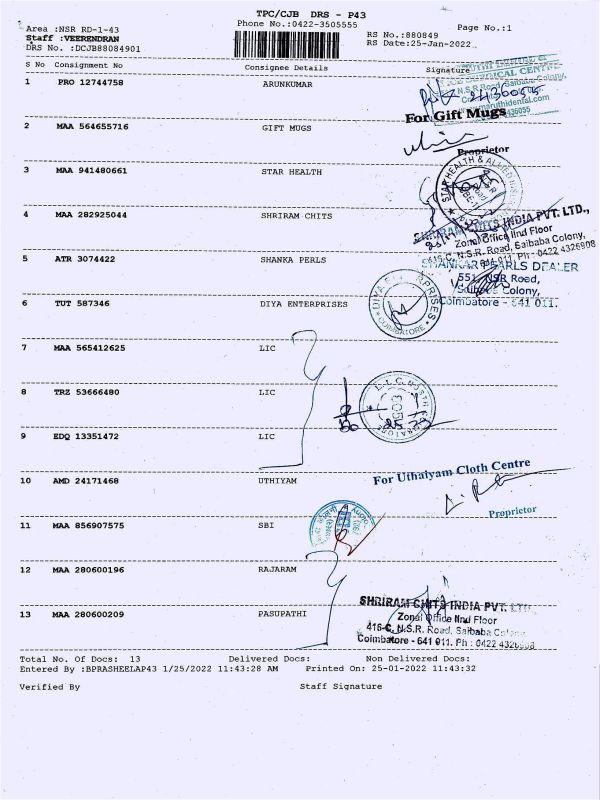 TPC/CJB DRS - P43
Phone No.:0422-3505555
Page No.:1
Area :NSR RD-1-43
Staff :VEERENDRAN
DRS No. :DCJB88084901
RS No.:880849
RS Date:25-Jan-2022
S No Consignment No Consignee Details Signature
1 PRO 12744758 ARUNKUMAR
N.S.R Road, Saibaba Colony,
www.maruthidental.com
For Gift Mugs
2 MAA 564655716 GIFT MUGS
Proprietor
3 MAA 941480661 STAR HEALTH
STAR HEALTH & ALLIED
4 MAA 282925044 SHRIRAM CHITS
SHRIRAM CHITS INDIA PVT. LTD.,
Zonal Office IInd Floor
416-C, N.S.R. Road, Saibaba Colony,
641 011. Ph: 0422 4326908
5 ATR 3074422 SHANKA PERLS
SHANKAR PEARLS DEALER
551, NSR Road,
Saibaba Colony,
Coimbatore - 641 011.
6 TUT 587346 DIYA ENTERPRISES
DIYA ENTERPRISES
COIMBATORE
7 MAA 565412625 LIC
8 TRZ 53666480 LIC
9 EDQ 13351472 LIC
10 AMD 24171468 UTHIYAM
For Uthaiyam Cloth Centre
Proprietor
11 MAA 856907575 SBI
12 MAA 280600196 RAJARAM
13 MAA 280600209 PASUPATHI
SHRIRAM CHITS INDIA PVT. LTD.
Zonal Office IInd Floor
416-C, N.S.R. Road, Saibaba Colony
Coimbatore - 641 011. Ph : 0422 4326908
Total No. Of Docs: 13 Delivered Docs: Non Delivered Docs:
Entered By :BPRASHEELAP43 1/25/2022 11:43:28 AM Printed On: 25-01-2022 11:43:32
Verified By Staff Signature